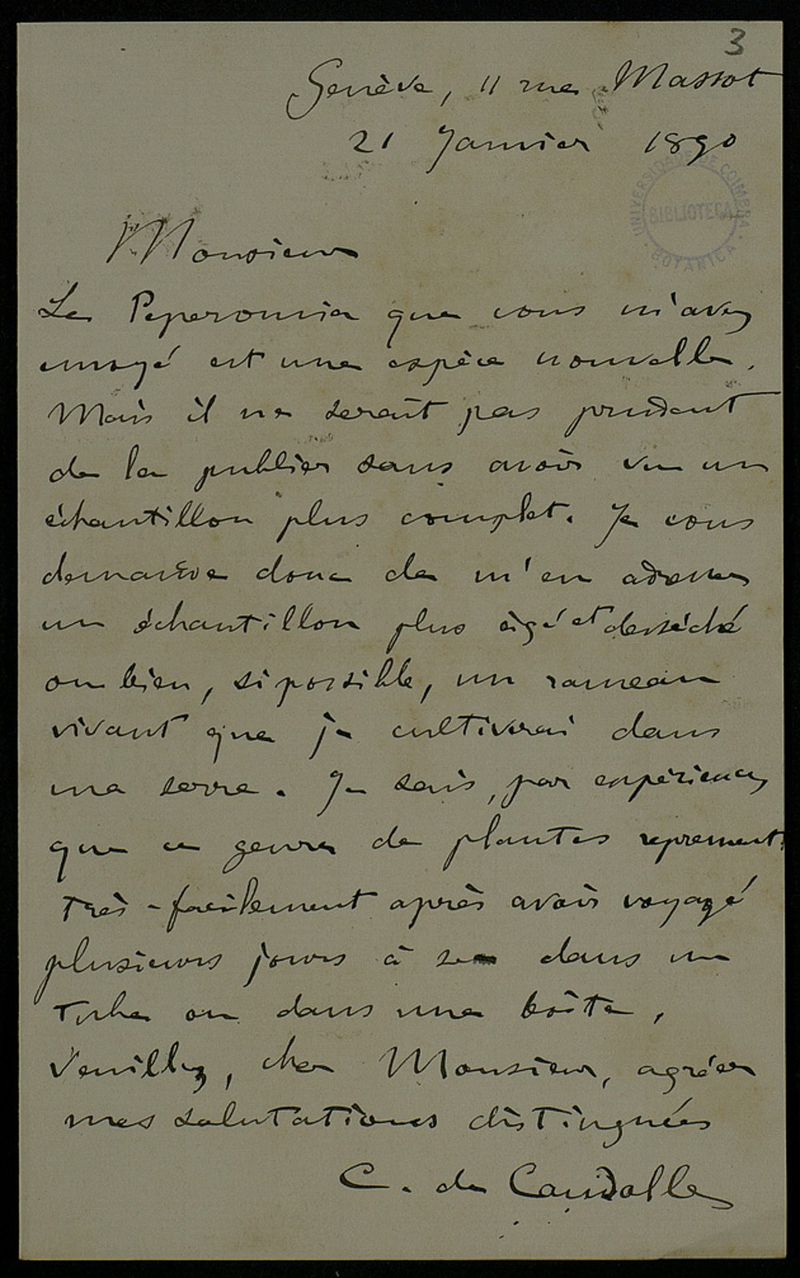 3
Genève, 11 rue Massot
21 Janvier 1890
UNIVERSIDADE DE COIMBRA
BIBLIOTECA
BOTANICA
Monsieur
Le Peperomia que vous m'avez
envoyé est une espèce nouvelle.
Mais il ne serait pas prudent
de la publier sans avoir vu un
échantillon plus complet. Je vous
demande donc de m'en adresser
un échantillon plus âgé et desséché
ou bien, si possible, un rameau
vivant que je cultiverai dans
ma serre. Je sais, par expérience,
que ce genre de plantes reprennent
très-facilement après avoir voyagé
plusieurs jours à sec dans un
tube ou dans une boîte.
Veuillez, cher Monsieur, agréer
mes salutations distinguées
C. de Candolle